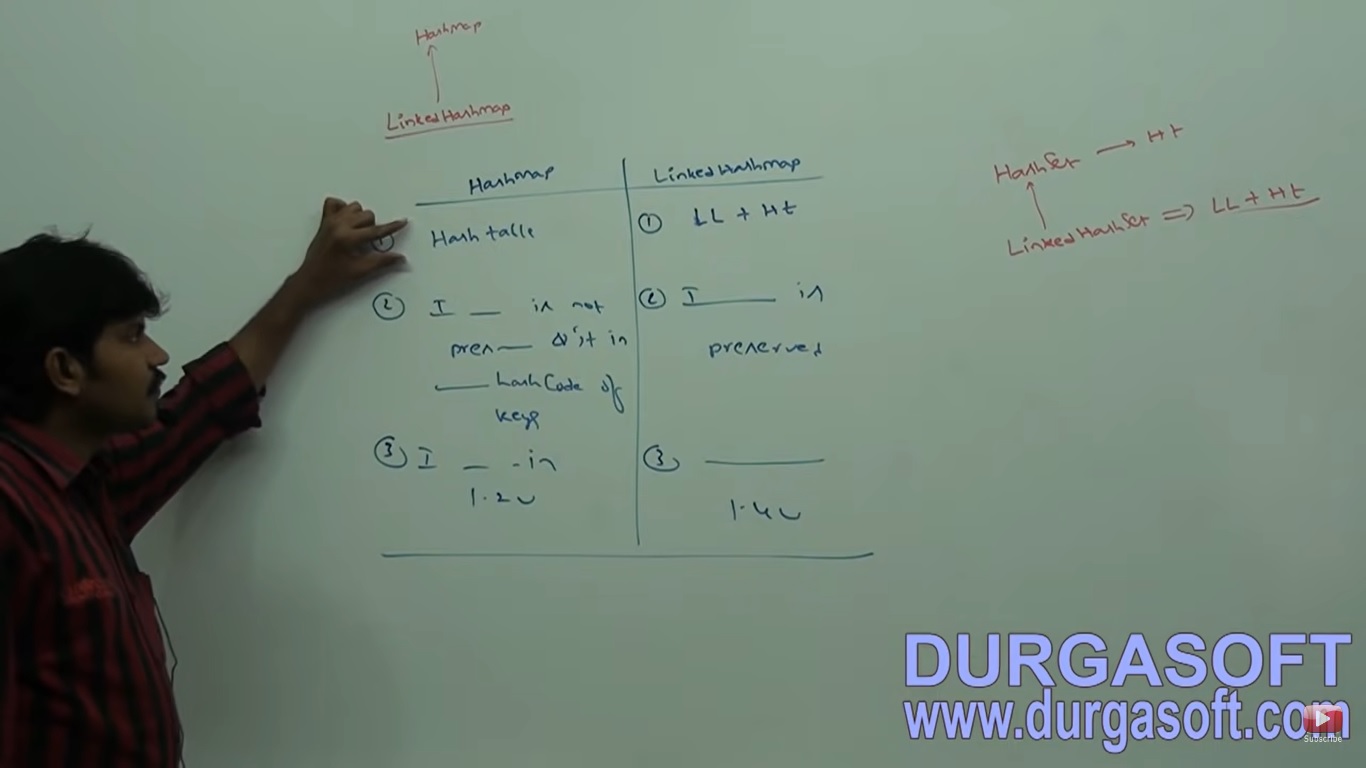 Hashmap
LinkedHashmap
Hashmap
LinkedHashmap
① Hash table
① LL + Ht
② I — is not
pres— & it in
— hashCode of
keys
② I — is
preserved
③ I — - in
1.2 v
③ —
1.4 v
HashSet → Ht
LinkedHashSet ⇒ LL + Ht
DURGASOFT
www.durgasoft.com
Subscribe